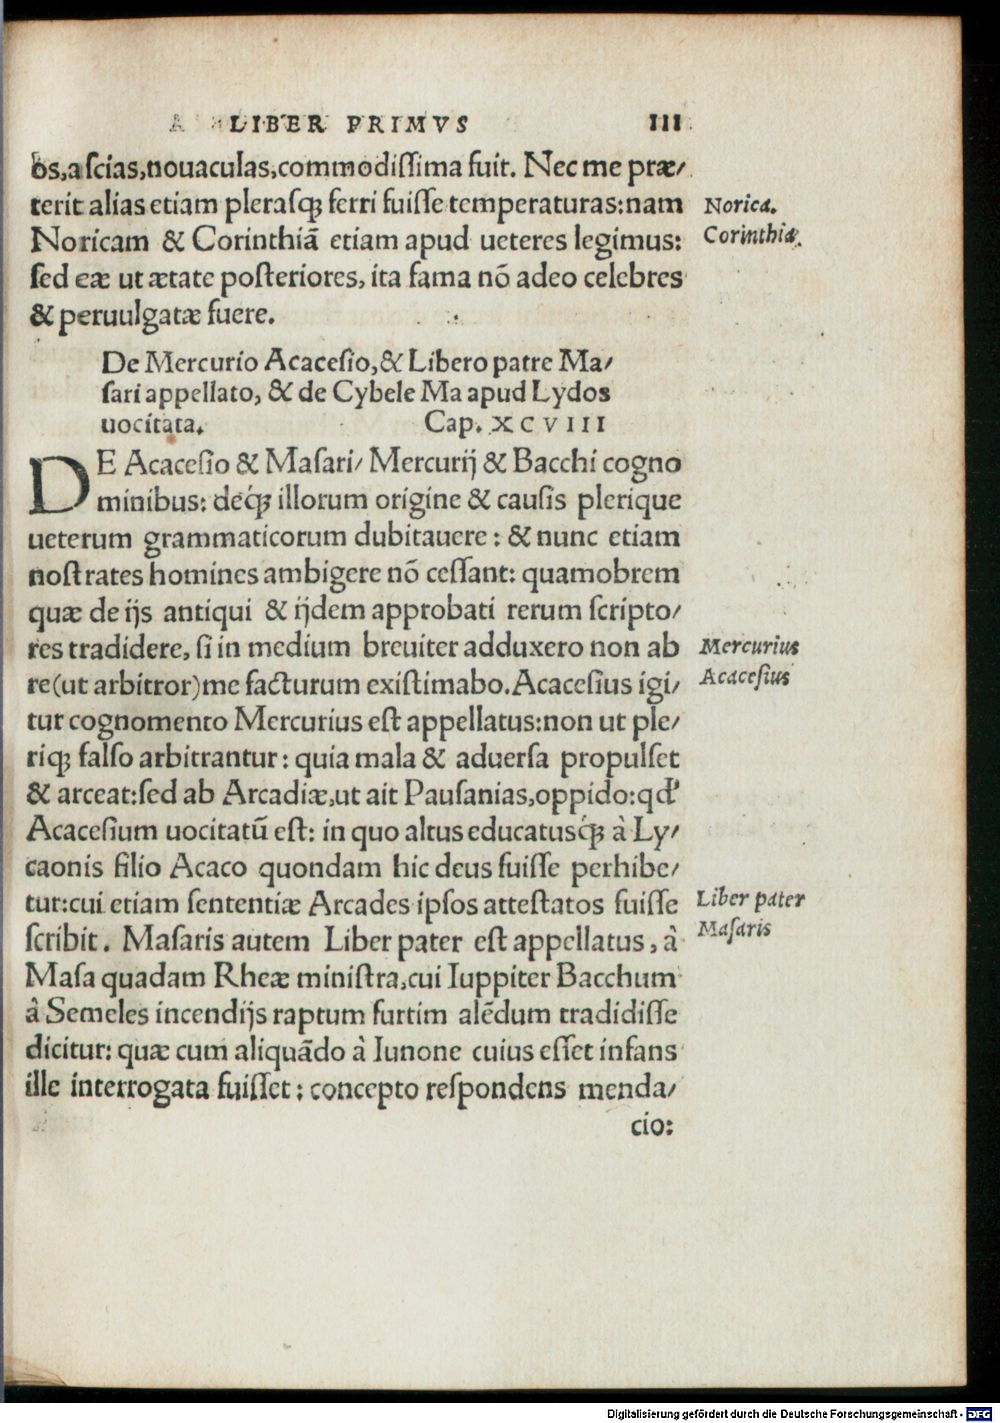 LIBER PRIMVS III
os,a scias,nouaculas,commodissima fuit. Nec me præ/
terit alias etiam plerasq; ferri fuisse temperaturas:nam
Norica.
Noricam & Corinthiã etiam apud ueteres legimus:
Corinthia.
sed eæ ut ætate posteriores, ita fama nõ adeo celebres
& peruulgatæ fuere.
De Mercurio Acacesio,& Libero patre Ma/
sari appellato, & de Cybele Ma apud Lydos
uocitata. Cap. XCVIII
DE Acacesio & Masari/ Mercurij & Bacchi cogno
minibus: deq́; illorum origine & causis plerique
ueterum grammaticorum dubitauere: & nunc etiam
nostrates homines ambigere nõ cessant: quamobrem
quæ de ijs antiqui & ijdem approbati rerum scripto/
res tradidere, si in medium breuiter adduxero non ab
Mercurius
re(ut arbitror)me facturum existimabo.Acacesius igi/
Acacesius
tur cognomento Mercurius est appellatus:non ut ple/
riq; falso arbitrantur: quia mala & aduersa propulset
& arceat:sed ab Arcadiæ,ut ait Pausanias,oppido:qd'
Acacesium uocitatũ est: in quo altus educatusq́; à Ly/
caonis filio Acaco quondam hic deus fuisse perhibe/
tur:cui etiam sententiæ Arcades ipsos attestatos fuisse
Liber pater
scribit. Masaris autem Liber pater est appellatus, à
Masaris
Masa quadam Rheæ ministra,cui Iuppiter Bacchum
à Semeles incendijs raptum furtim alẽdum tradidisse
dicitur: quæ cum aliquãdo à Iunone cuius esset infans
ille interrogata fuisset: concepto respondens menda/
cio:
Digitalisierung gefördert durch die Deutsche Forschungsgemeinschaft - DFG